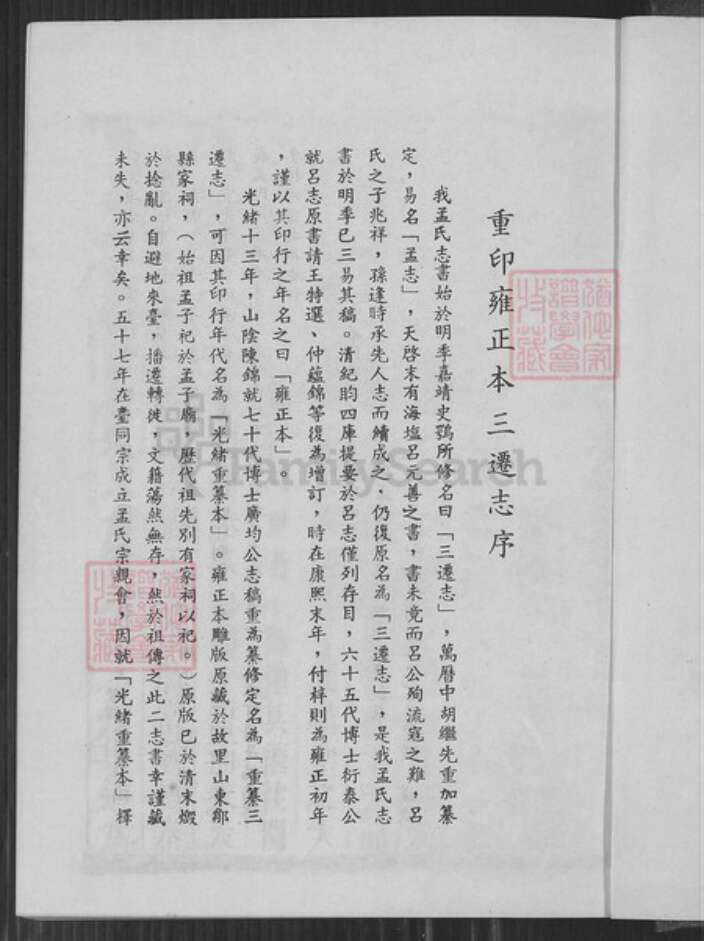 重印雍正本三遷志序
我孟氏志書始於明季嘉靖史鶚所修名曰「三遷志」，萬曆中胡繼先重加纂
定，易名「孟志」，天啓末有海塩呂元善之書，書未竟而呂公殉流寇之難，呂
氏之子兆祥，孫逢時承先人志而續成之，仍復原名為「三遷志」，是我孟氏志
書於明季已三易其稿。清紀昀四庫提要於呂志僅列存目，六十五代博士衍泰公
就呂志原書請王特選、仲蘊錦等復為增訂，時在康熙末年，付梓則為雍正初年
，謹以其印行之年名之曰「雍正本」。
光緒十三年，山陰陳錦就七十代博士廣均公志稿重為纂修定名為「重纂三
遷志」，可因其印行年代名為「光緒重纂本」。雍正本雕版原藏於故里山東鄒
縣家祠，（始祖孟子祀於孟子廟，歷代祖先別有家祠以祀。）原版已於清末燬
於捻亂。自避地來臺，播遷轉徙，文籍蕩然無存，然於祖傳之此二志書幸謹藏
未失，亦云幸矣。五十七年在臺同宗成立孟氏宗親會，因就「光緒重纂本」擇
FamilySearch